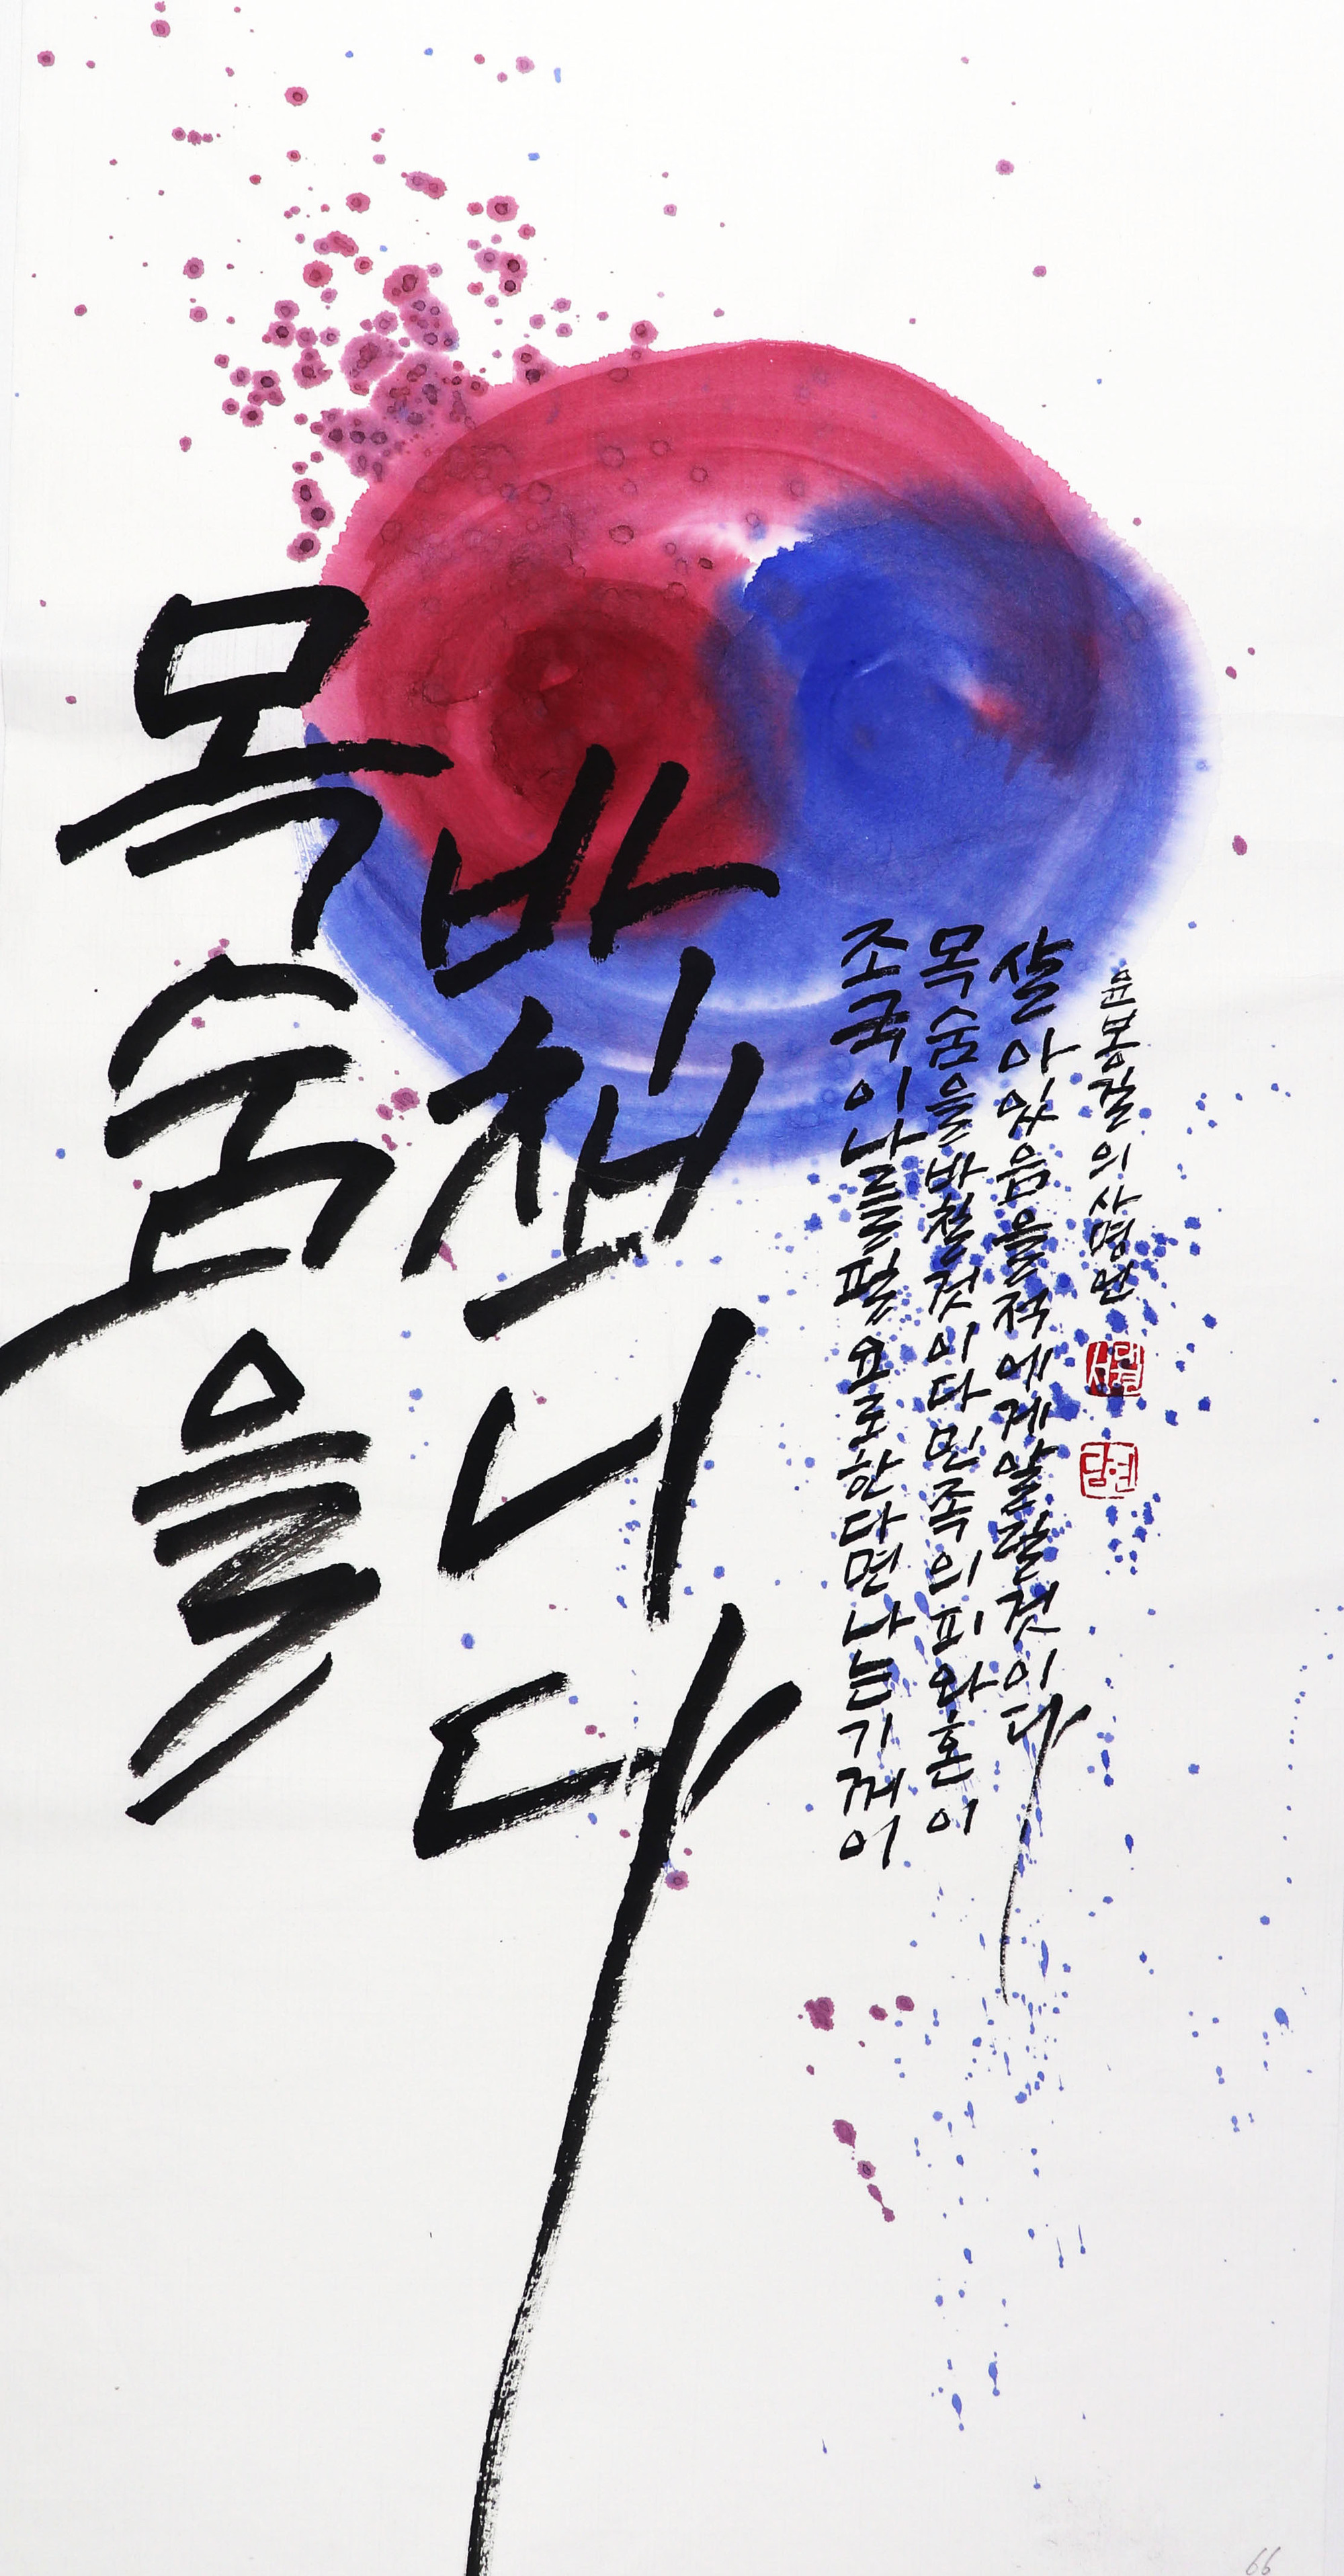 목숨을
바칩니다
조국이 나를 필요로 한다면 나는 기꺼이
목숨을 바칠 것이다 민족의 피와 혼이
살아있음을 적에게 알릴 것이다
윤봉길 의사 명언
담현
66